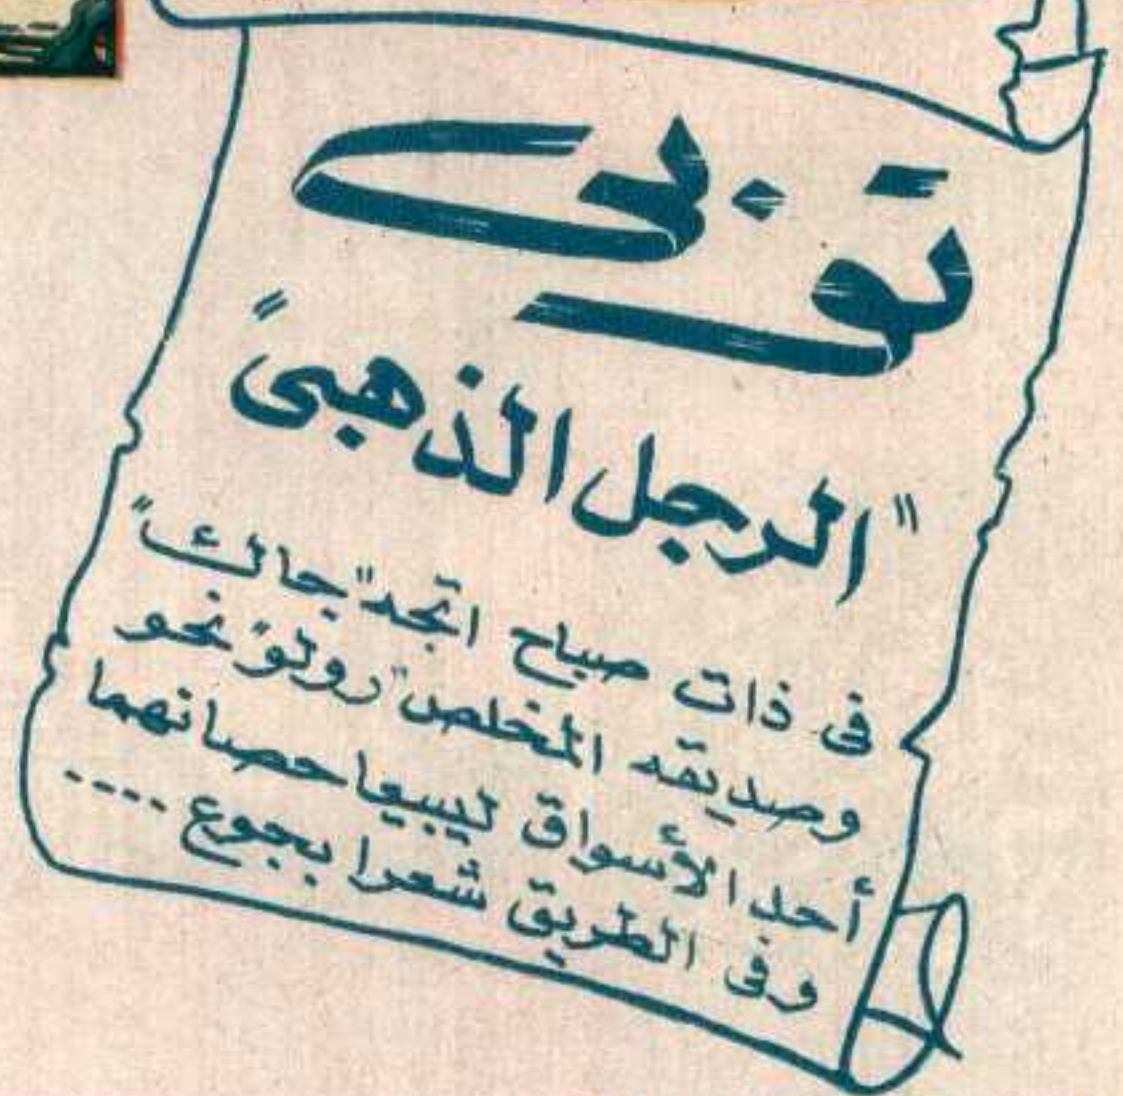 تونى
"الرجل الذهبى"
فى ذات صباح اتجه "جاك"
وصديقه المخلص "رولو" نحو
أحد الأسواق ليبيعا حصانهما
وفى الطريق شعرا بجوع ....